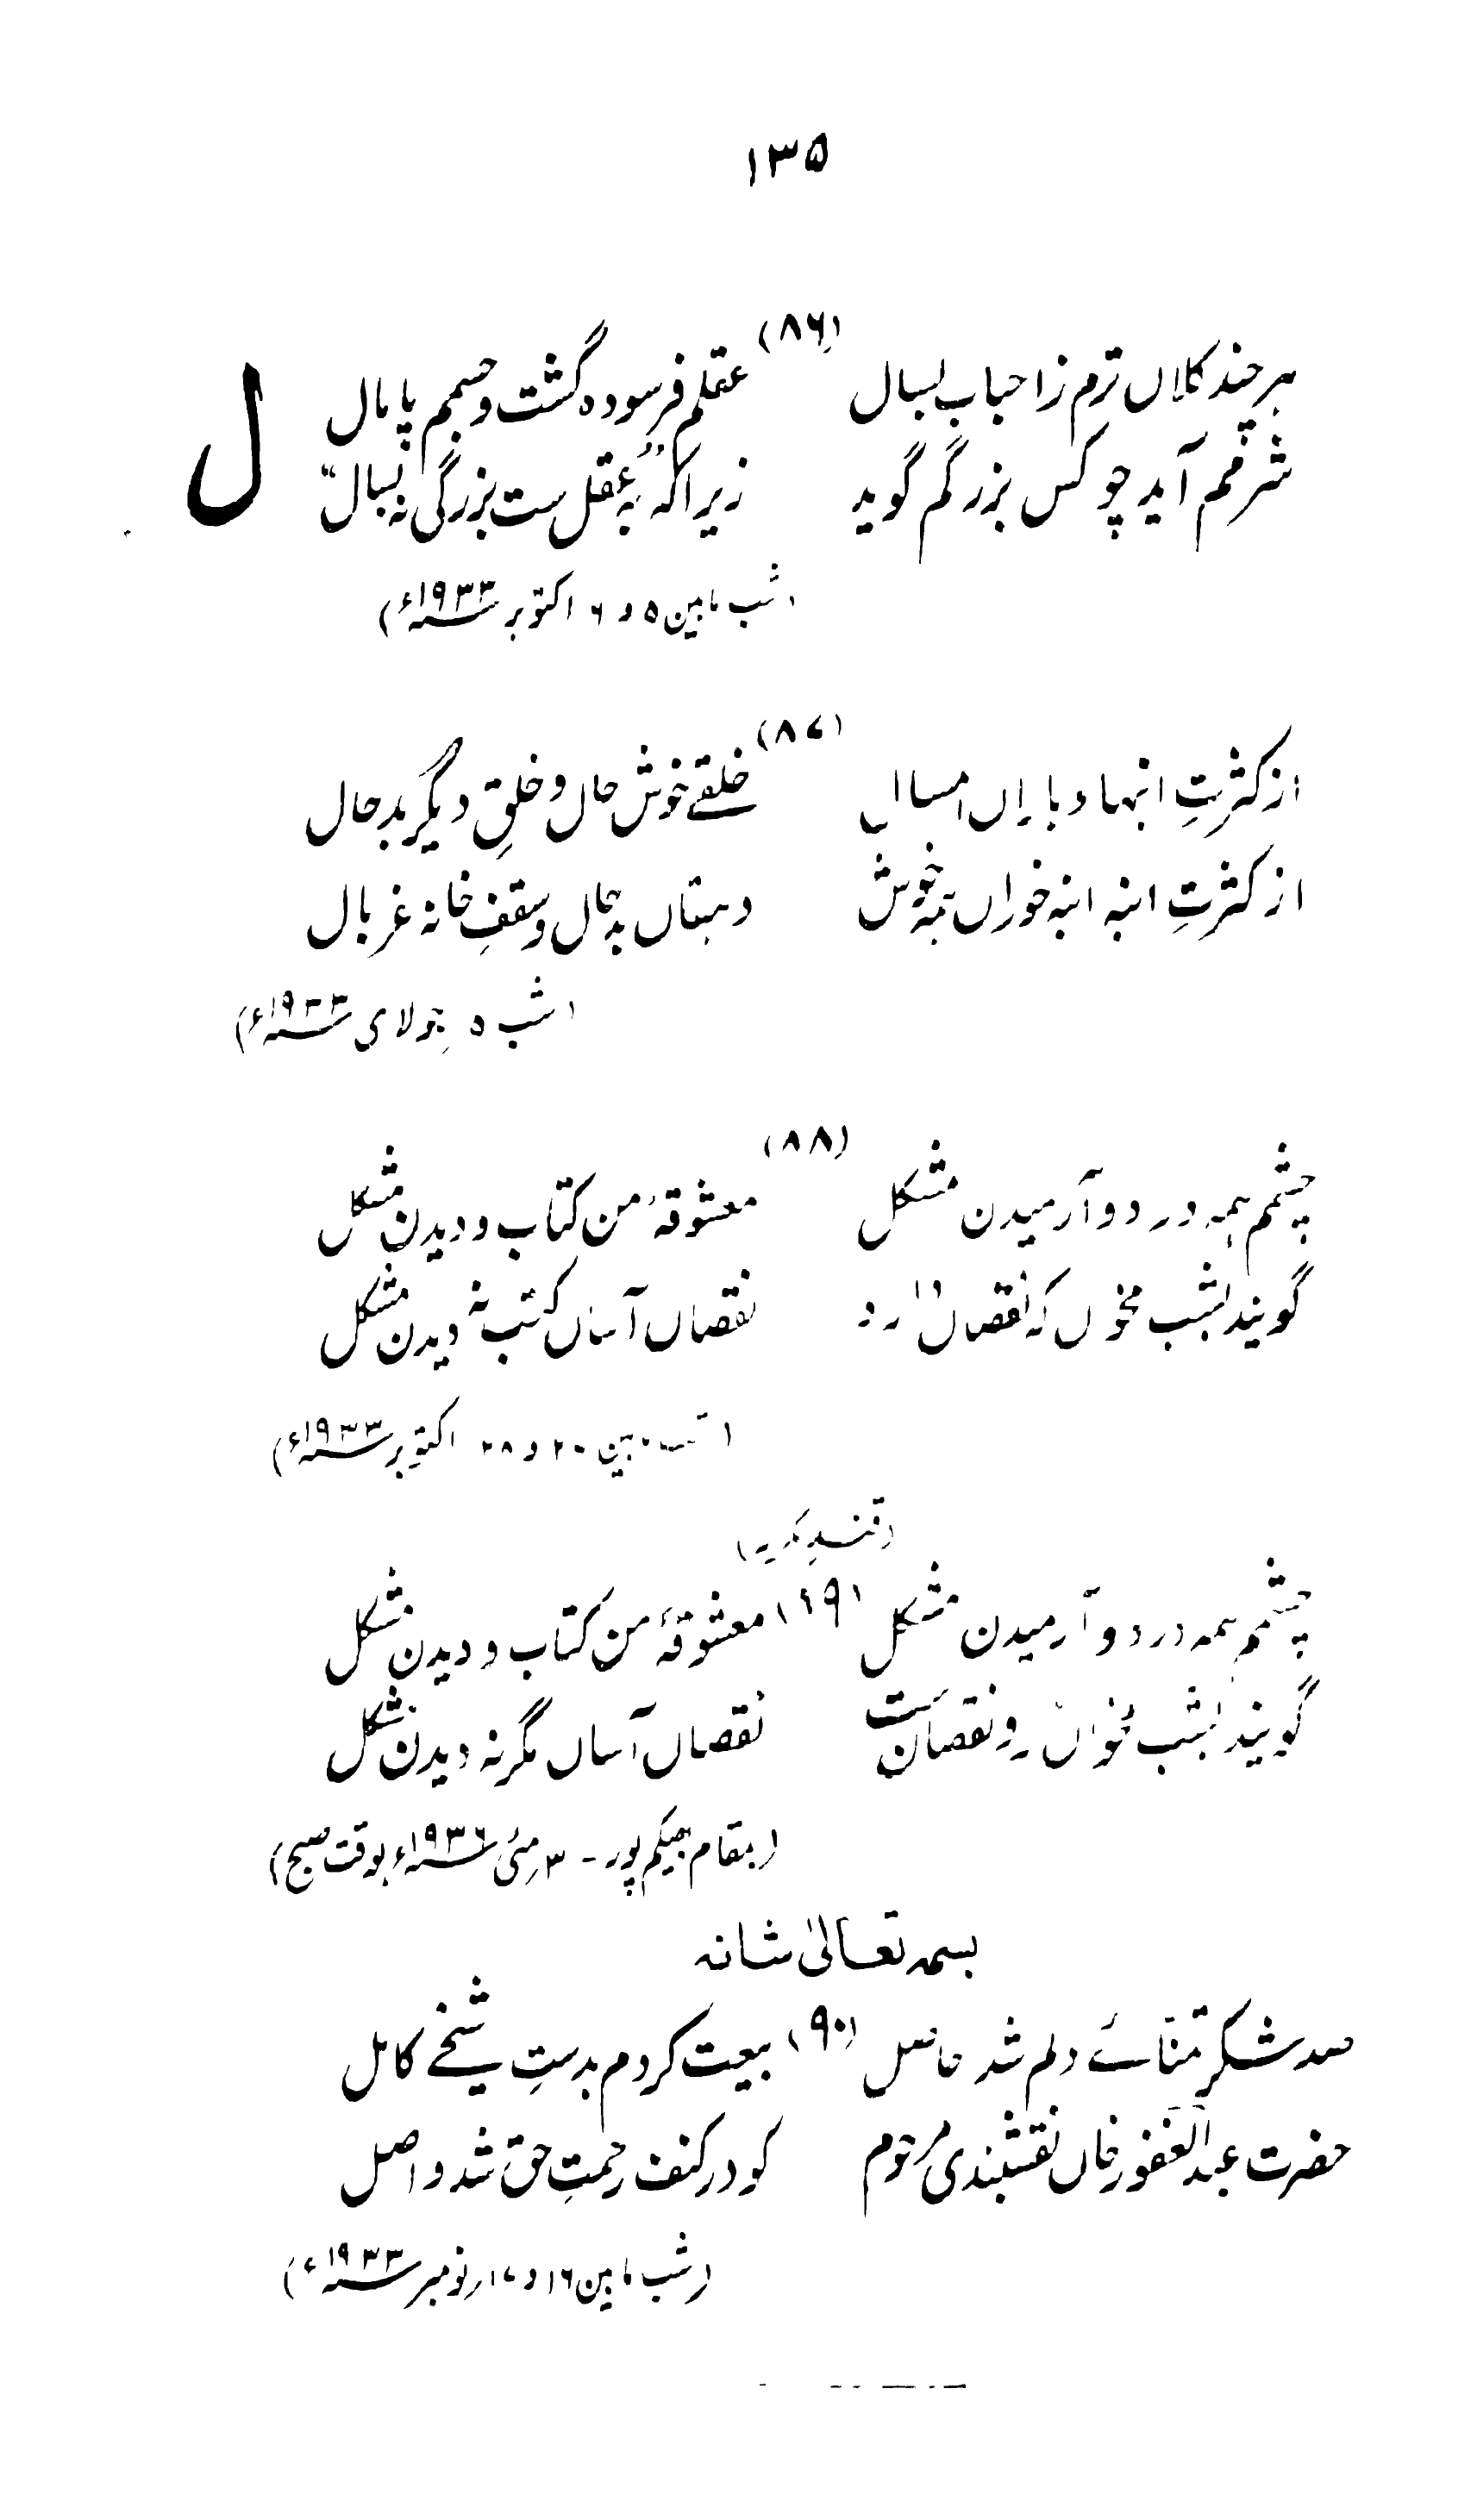 ۱۳۵
(۸۶)
ہرچند کلاں ترم ز احباب بسال عقلم فرسودہ گشت و جسمم پامال
شرمم آید چو کس بزرگم گوید زیراکہ "بعقل ست بزرگی نہ بسال"
ل
(شب مابین ۵ و ۶ اکتوبر ۱۹۳۳ء)
(۸۷)
از کثرتِ انبہا و باراں امسال خلقے خوش حال و خلقِ دیگر بد حال
از کثرتِ انبہ انبہ خوراں خوش دہقاں بد حال و سقفِ خانہ غربال
(شب ۵ جولائی ۱۹۳۳ء)
(۸۸)
چشمم ہمہ درد و آرمیدن مشکل معشوقۂ من کتاب و دیدن مشکل
گویند بشب مخواں کہ نقصاں دارد نقصاں آساں کتب ندیدن مشکل
اکتوبر ۱۹۳۳ء)
(قندِ مکرر)
(۸۹)
چشمم ہمہ درد و آرمیدن مشکل معشوقۂ من کتاب و دیدن مشکل
گویند بشب مخواں نقصان ست نقصاں آساں مگر ندیدن مشکل
(بمقام بھیکم پور - ۳ مئی ۱۹۳۶ء بوقت صبح)
بسمہ تعالیٰ شانہ
(۹۰)
صد شکر تمنائے دلم شد حاصل بیعت کردم بدستِ شیخے کامل
حضرت عبدالغفور خاں نقشبندی کہ کو در کنف رحمتِ حق شد واصل
(شب مابین ۱۶ و ۱۷ نومبر ۱۹۳۳ء)